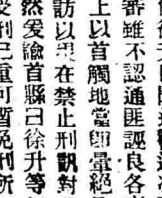 審雖不認通匪誣良各
上以首觸地當卽暈絕
訪以現在禁止刑訊對
然爰諭首縣已徐升等
刑已重可暫免刑所